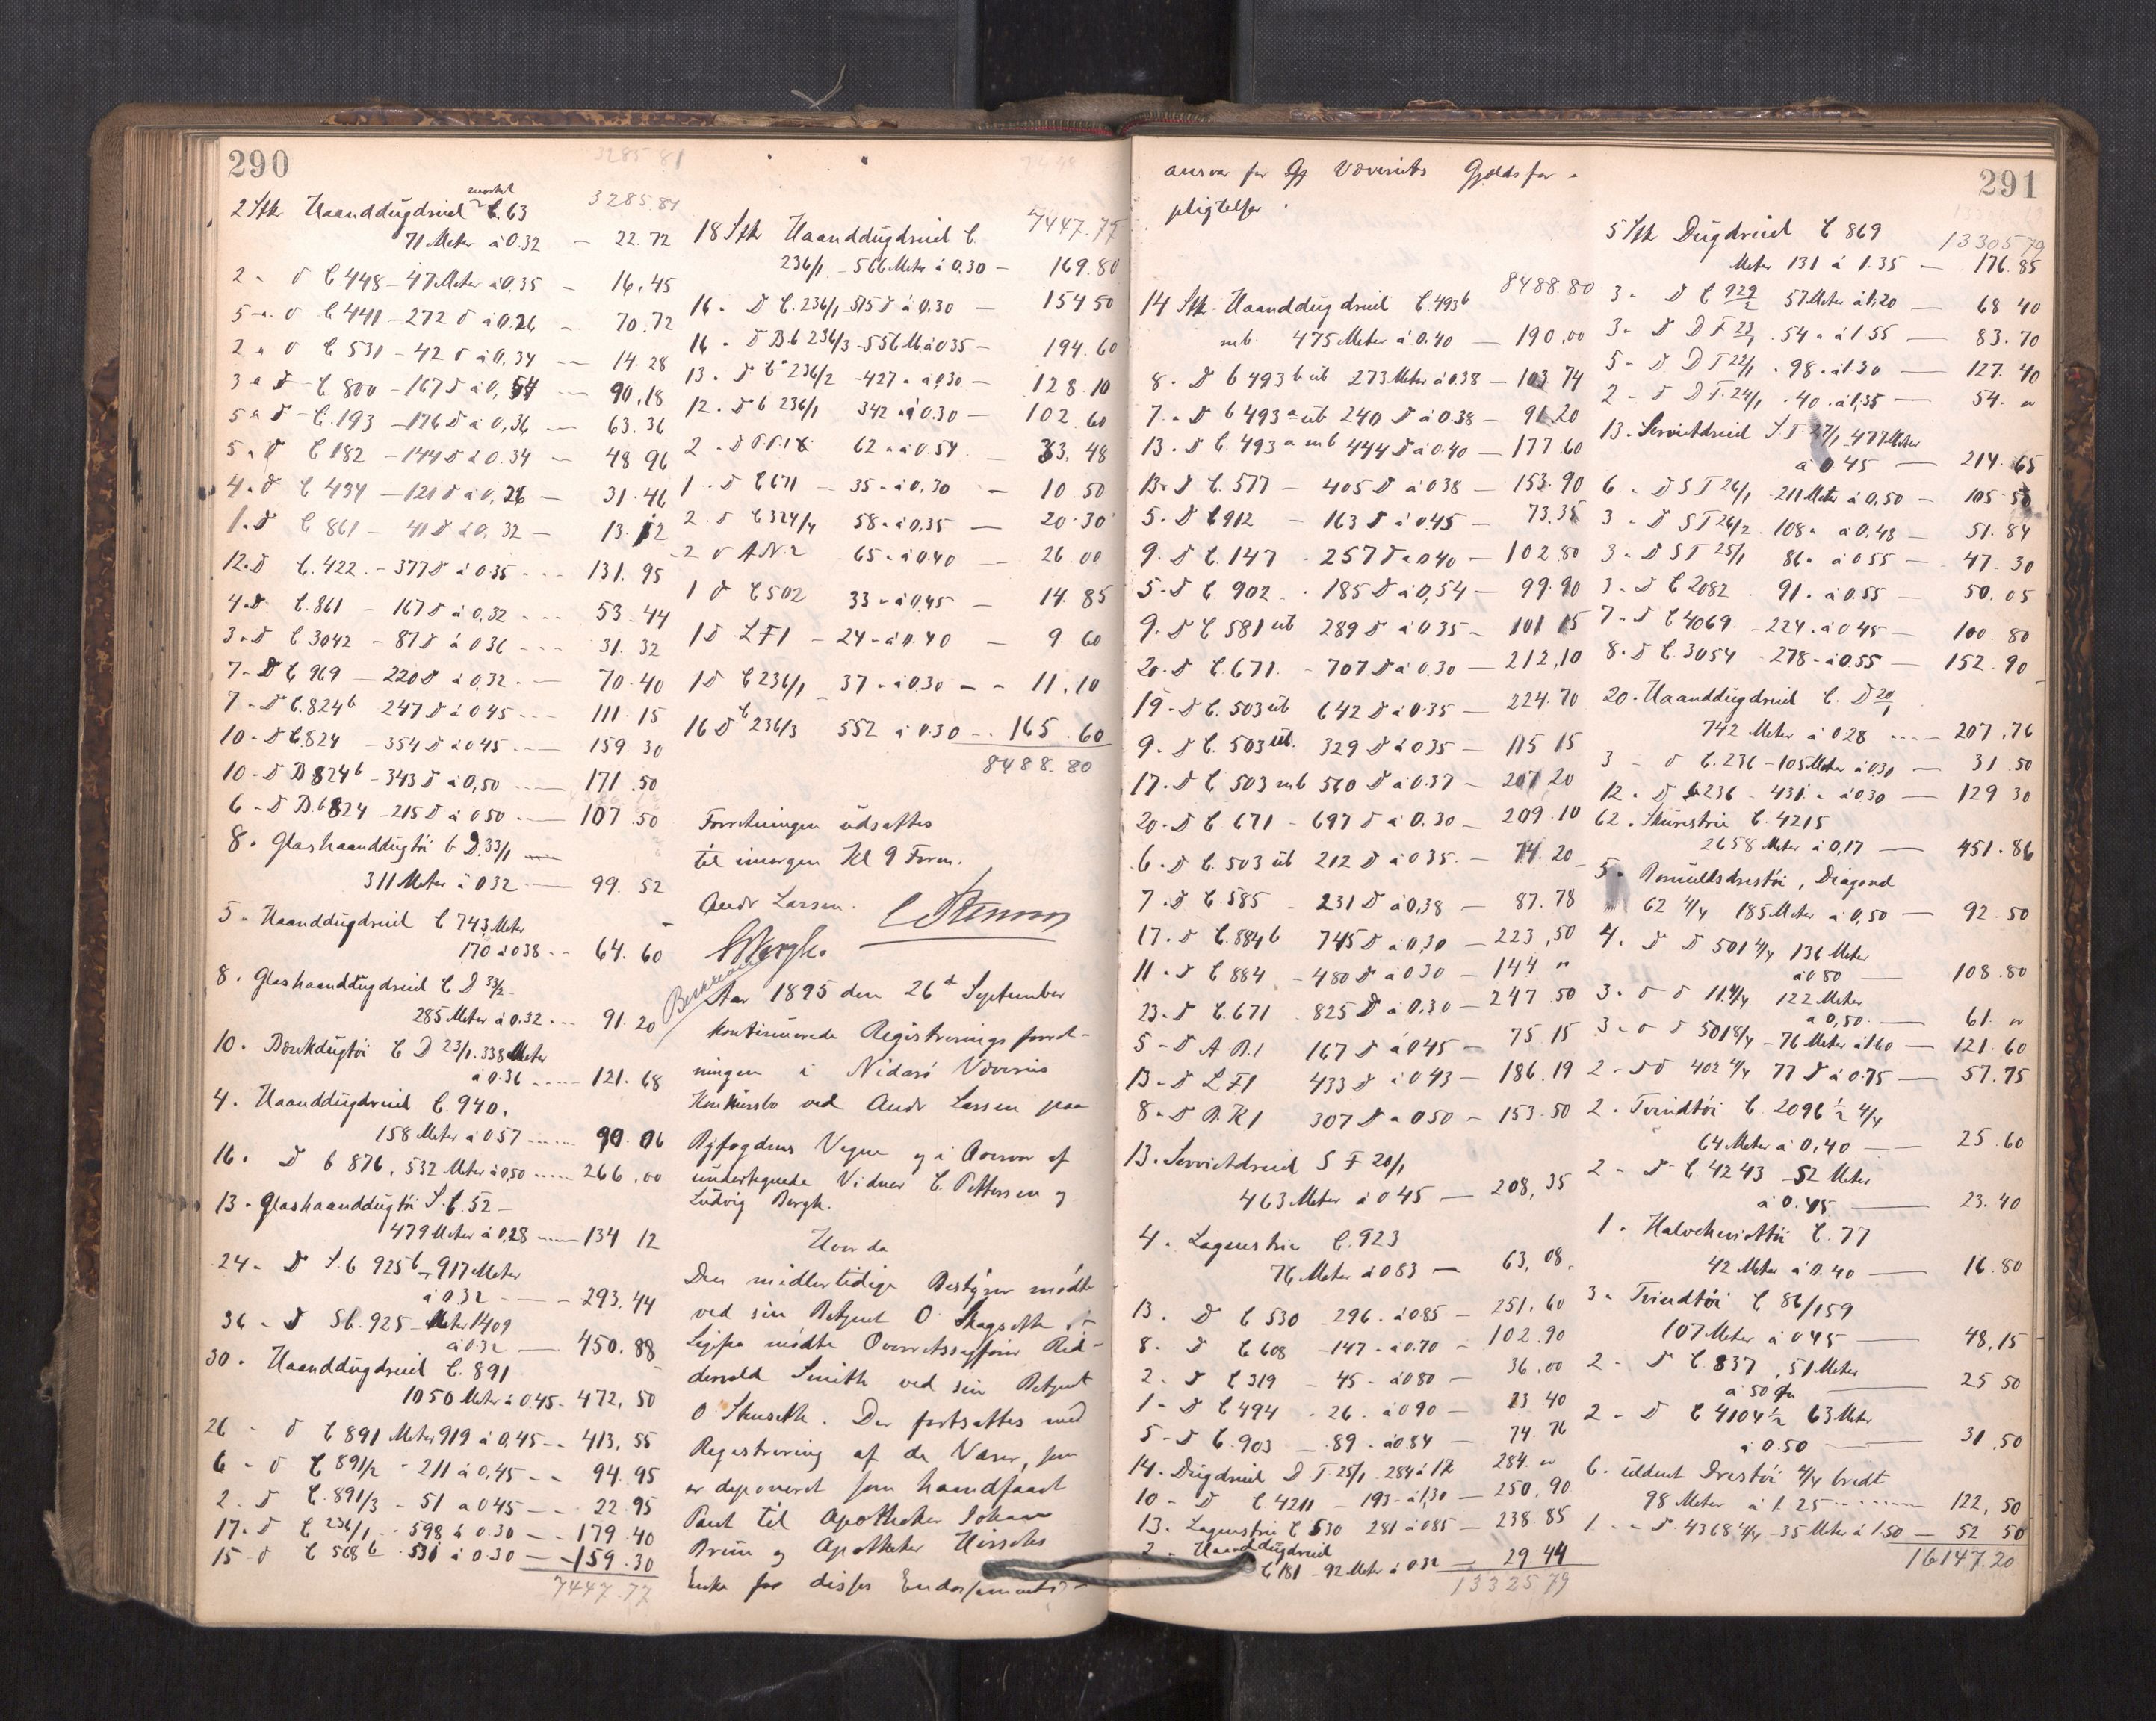 290
3285.81
2 Stk Haanddugdreil mærket C. 63
71 Meter à 0.32 — 22.72
2 " D C 448 – 47 Meter à 0.35 – 16,45
5 " D C 441 – 272 D à 0.26 – 70.72
2 " D C 531 – 42 D à 0,34 — 14.28
3 " D C 800 – 167 D à 0,54 — 90,18
5 " D C. 193 – 176 D à 0,36 — 63.36
5 " D C 182 – 144 D à 0.34 — 48 96
4 " D C 434 – 121 D à 0,26 — 31.46
1 " D C 861 – 41 D à 0,32 — 13.12
12 " D C. 422 – 377 D à 0.35 --- 131.95
4 " D C. 861 – 167 D à 0,32 --- 53.44
3 " D C 3042 – 87 D à 0 36 --- 31.32
7 " D C 969 – 220 D à 0,32 -- 70.40
7 " D C. 824 b 247 D à 0 45 --- 111.15
10 " D C. 824 – 354 D à 0 45 --- 159.30
10 " D B 824 b – 343 D à 0,50 --- 171.50
6 " D B. b 824 – 215 D à 0 50 --- 107.50
8 " Glashaanddugtöi C D. 33/1
311 Meter à 0 32 — 99.52
5 " Haanddugdreil C 743 Meter
170 à 0 38 -- 64.60
8 " Glashaanddugdreil C D 33/2
285 Meter à 0.32 --- 91.20
10 " Bænkdugtöi C D 23/1. 338 Meter
à 0.36 ---- 121.68
4 " Haanddugdreil C. 940.
158 Meter à 0 57 ---- 90.06
16 " D C 876, 532 Meter à 0,50 ---- 266.00
13 " Glashaanddugtöi S. C. 52 –
479 Meter à 0,28 ---- 134 12
24 " D S. C 925 b – 917 Meter
à 0.32 ---- 293.44
36 " D S C. 925 – Meter 1409
à 0.32 — 450.88
30 " Haanddugdreil C. 891
1050 Meter à 0.45 – 472,50
26 " D C 891 Meter 919 à 0,45 -- 413,55
6 " D C 891/2 " 211 à 0,45 -- 94.95
2 " D C. 891/3 – 51 à 0 45 -- 22.95
17 " D C 236/1 – 598 à 0.30 -- 179.40
15 " D C 568 b 531 à 0.30 – 159.30
7447.77
7447.77
18 Stk Haanddugdreil C.
236/1 – 566 Meter à 0,30 – 169.80
16 " D C. 236/1 – 515 D à 0,30 — 154 50
16 " D B. b 236/3 – 556 M. à 0 35 – 194.60
13 " D C 236/2 – 427 " à 0,30 – 128.10
12 " D C 236/1 342 " à 0.30 – 102.60
2 " D 62 " à 0.54 – 33,48
1 " D C 671 – 35 " à 0,30 – 10.50
2 " D C 324/4 58 " à 0,35 — 20.30
2 D A N. 2 65 " à 0.40 — 26.00
1 D C 502 33 " à 0,45 — 14.85
1 D L F 1 – 24 " à 0.40 — 9.60
1 D C 236/1 – 37 " à 0.30 -- 11,10
16 D b 236/3 552 à 0.30 -- 165.60
8488.80
Forretningen udsattes
til imorgen Kl 9 Form.
Andr Larsen.
L Bergh.
Aar 1895 den 26d September
kontinuerede Registreringsforret-
ningen i Nidarö Væveries
Konkursbo ved Andr Larsen paa
Byfogdens Vegne og i Overvær af
undertegnede Vidner C. Pettersen og
Ludvig Bergh.
Hvorda
Den midlertidige Bestyrer mødte
ved sin Betjent O Skagseth
Ligesaa mødte Overretssagfører Rid-
dervold Smith ved sin Betjent
O. Skuseth. Der fortsattes med
Registrering af de Varer, som
er deponeret som haandfaaet
Pant til Apotheker Johan
Bruun og Apotheker Hirschs
Enke for disses Endossements-
291
ansvar for Væveriets Gjældsfor-
pligtelser.
8488.80
14 Stk Haanddugdreil C. 493 b
mb. 475 Meter à 0.40 — 190.00
8 " D C 493 b ub 273 Meter à 0.38 – 103.74
7 " D C 493 a ub 240 D à 0.38 – 91.20
13 " D C. 493 a mb 444 D à 0.40 – 177.60
13 " D C. 577 – 405 D à 0 38 – 153.90
5 " D C 912 – 163 D à 0.45 – 73,35
9 " D C. 147 – 257 D à 0 40 – 102.80
5 " D C. 902 . 185 D à 0,54 – 99.90
9 " D C 581 ub 289 D à 0 35 – 101 15
20 " D C. 671 – 707 D à 0.30 – 212,10
19 " D C. 503 ub 642 D à 0.35 – 224.70
9 " D C. 503 ub. 329 D à 0 35 – 115 15
17 " D C 503 mb 560 D à 0.37 – 207,20
20 " D C. 671 – 697 D à 0.30 – 209.10
6 " D C. 503 ub 212 D à 0 35 – 74.20
7 " D C. 585 – 231 D à 0,38 – 87.78
17 " D C. 884 b 745 D à 0,30 – 223,50
11 " D C 884 – 480 D à 0 30 – 144 "
23 " D C. 671 825 D à 0,30 – 247.50
5 " D A B. 1 167 D à 0 45 – 75.15
13 " D L F 1 433 D à 0 43 – 186.19
8 " D B. K 1 307 D à 0 50 – 153.50
13 " Servietdreil S F 20/1
463 Meter à 0 45 — 208,35
4 " Lagenstrie C. 923
76 Meter à 0 83 — 63,08
13 " D C 530 296 " à 0 85 – 251.60
8 " D C 608 – 147 " à 0.70 – 102.90
2 " D C 319 – 45 " à 0 80 – 36.00
1 " D C 494 – 26 " à 0 90 – 23 40
5 " D C. 903 – 89 " à 0.84 – 74.76
14 " Dugdreil D. T. 25/1 284 à 1 K 284. "
10 " D C. 4211 – 193 " à 1,30 – 250,90
13 " Lagenstrie C 530 281 à 0 85 – 238.85
2 " Haanddugdreil
C 181 – 92 Meter à 0 32 – 29 44
13325.79
5 Stk Dugdreil C 869
13305 79
Meter 131 à 1.35 — 176.85
3 " D C 929/1 57 Meter à 1,20 — 68 40
3 " D D F 23/1 . 54 " à 1.55 — 83.70
5 " D D T 22/1 . 98 " à 1.30 — 127.40
2 " D D T. 24/1 . 40 . à 1,35 — 54. "
13 " Servietdreil S T 27/1 477 Meter
à 0.45 — 214.65
6 " D S T 26/1 211 Meter à 0,50 – 105.50
3 " D S T 26/2 108 " à 0,48 – 51.84
3 " D S T 25/1 86 " à 0 55 – 47.30
3 " D C 2082 91 " à 0.55 – 50.05
7 " D C 4069 – 224 " à 0 45 – 100.80
8 " D C. 3054 278 " à 0.55 – 152.90
20 " Haanddugdreil C. D 20/1
742 Meter à 0 28 ---- 207,76
3 " D C. 236 – 105 Meter à 0,30 — 31.50
12 " D C 236 – 431 " à 0.30 — 129 30
62 " Skurestrie C. 4215
2658 Meter à 0,17 — 451.86
5 " Bomuldsdrestöi, Diagonal
62 4/4 185 Meter à 0,50 — 92.50
4 " D D 501 4/4 136 Meter
à 0 80 — 108.80
3 " D D 11 4/4 122 Meter
à 0,50 — 61. "
3 " D D 501 8/4 – 76 Meter à 1.60 — 121.60
2 " D D 402 4/4 77 D à 0.75 — 57.75
2 " Tvindtöi C. 2096 1/2 4/4
64 Meter à 0,40 — 25.60
2 " D C. 4243 52 Meter
à 0.45 — 23.40
1 " Halvcheviottöi C. 77
42 Meter à 0.40 — 16.80
3 " Tvindtöi C 86/159
107 Meter à 0 45 — 48,15
2 " D C. 837, 51 Meter
à 50 Øre — 25 50
2 " D C 4104 1/2 63 Meter
à 0.50 — 31.50
6 " uldent Drestöi 4/4 bredt
98 Meter à 1.25 ---- 122,50
1 " D. 4368 4/4 35 Meter à 1.50 — 52 50
16147.20